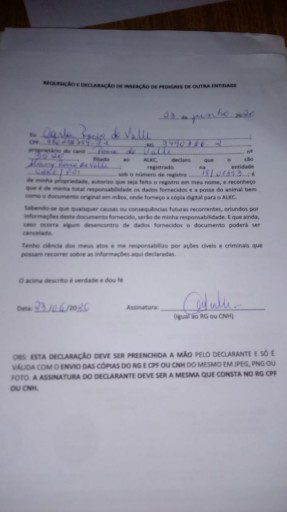 REQUISIÇÃO E DECLARAÇÃO DE INSERÇÃO DE PEDIGREE DE OUTRA ENTIDADE
de junho de 20
Eu do Valle
CPF RG
proprietário do canil do Valle nº
filiado ao ALKC, declaro que o cão
registrado na entidade
sob o número de registro é
de minha propriedade, autorizo que seja feito o registro em meu nome, e reconheço
que é de minha total responsabilidade os dados fornecidos e a posse do animal bem
como o documento original em mãos, onde forneço a cópia digital para o ALKC.
Sabendo-se que quaisquer causas ou consequências futuras recorrentes, oriundos por
informações deste documento fornecido, serão de minha responsabilidade. E que ainda,
caso ocorra algum desencontro de dados fornecidos o documento poderá ser
cancelado.
Tenho ciência dos meus atos e me responsabilizo por ações cíveis e criminais que
possam recorrer sobre as informações aqui declaradas.
O acima descrito é verdade e dou fé
Data: Assinatura:
(Igual ao RG ou CNH)
OBS: ESTA DECLARAÇÃO DEVE SER PREENCHIDA A MÃO PELO DECLARANTE E SÓ É
VÁLIDA COM O ENVIO DAS CÓPIAS DO RG E CPF OU CNH DO MESMO EM JPEG, PNG OU
FOTO. A ASSINATURA DO DECLARANTE DEVE SER A MESMA QUE CONSTA NO RG CPF
OU CNH.